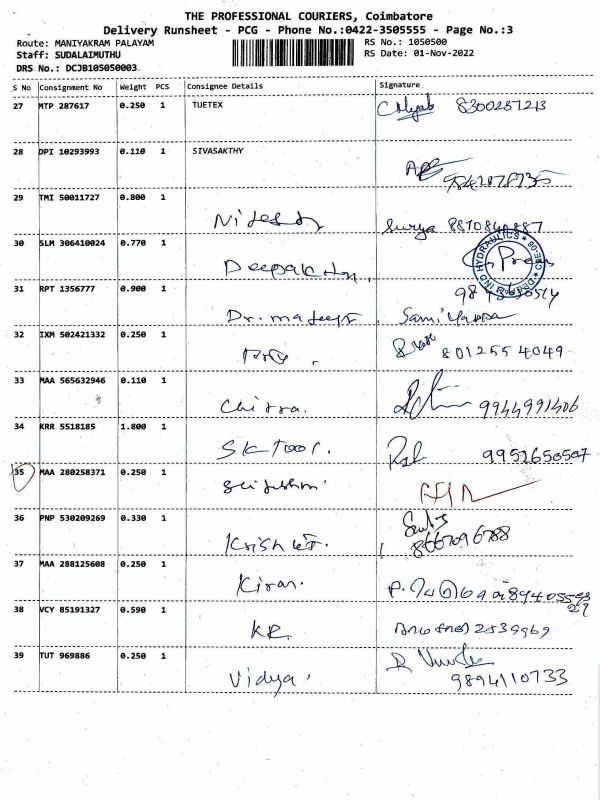 THE PROFESSIONAL COURIERS, Coimbatore
Delivery Runsheet - PCG - Phone No.:0422-3505555 - Page No.:3
Route: MANIYAKRAM PALAYAM
RS No.: 1050500
Staff: SUDALAIMUTHU
RS Date: 01-Nov-2022
DRS No.: DCJB105050003
S No Consignment No Weight PCS Consignee Details Signature
27 MTP 287617 0.250 1 TUETEX 8300287213
28 DPI 10293993 0.110 1 SIVASAKTHY
29 TMI 50011727 0.800 1 Surya
30 SLM 306410024 0.770 1 Deepak
HYDRAULICS
31 RPT 1356777 0.900 1 Dr.
32 IXM 502421332 0.250 1 8012554049
33 MAA 565632946 0.110 1 Chitra. 9944991406
34 KRR 5518185 1.800 1 SK Tool. 9952650507
35 MAA 280258371 0.250 1
36 PNP 530209269 0.330 1 8667096788
37 MAA 288125608 0.250 1 Kiran.
38 VCY 85191327 0.590 1 KR 2539969
39 TUT 969886 0.250 1 Vidya. 9894110733